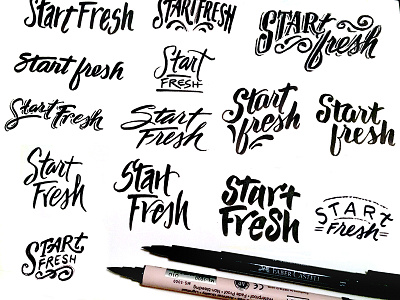 Start Fresh
START FRESH
START
fresh
Start fresh
Start
FRESH
Start Fresh
Start
Fresh
Start
fresh
Start
fresh
Start
Fresh
Start
Fresh
Start
Fresh
START
Fresh
START
FRESH
FABER-CASTELL